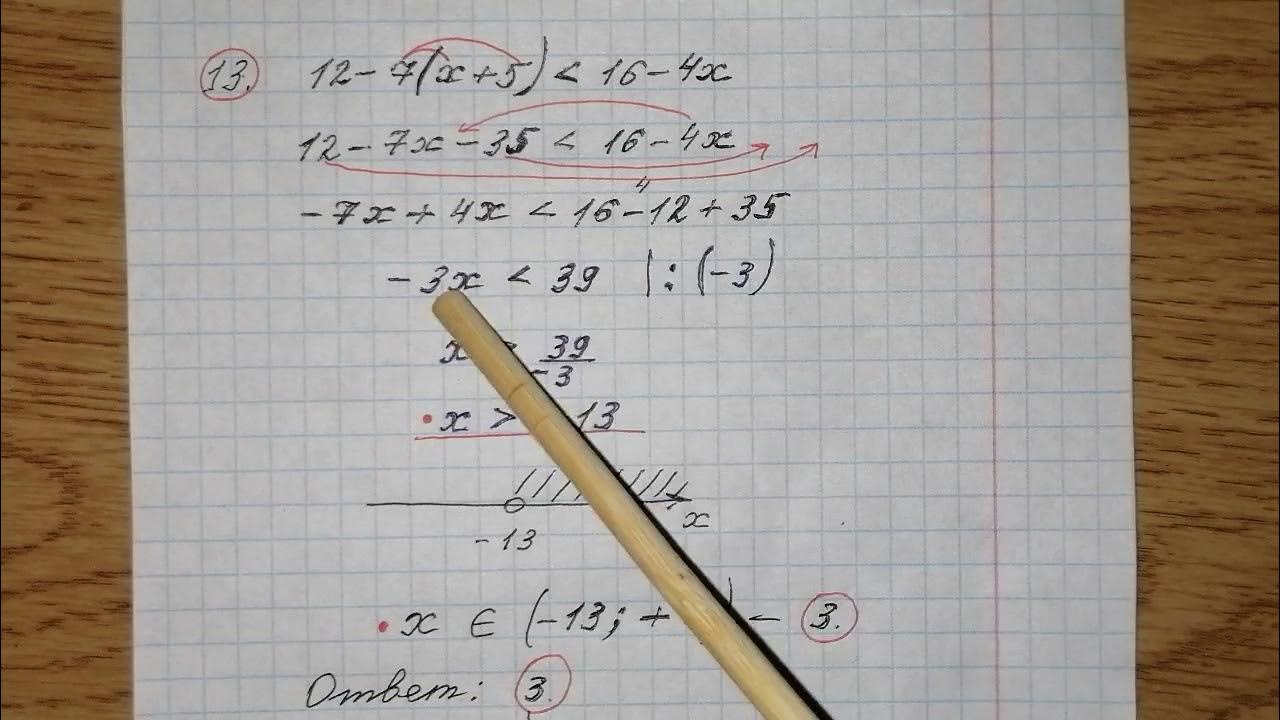 13. 12 - 7(x + 5) < 16 - 4x
12 - 7x - 35 < 16 - 4x
4
-7x + 4x < 16 - 12 + 35
-3x < 39 | : (-3)
x 39
-3
x > 13
-13 x
x ∈ (-13; + ) - 3.
Ответ: 3.